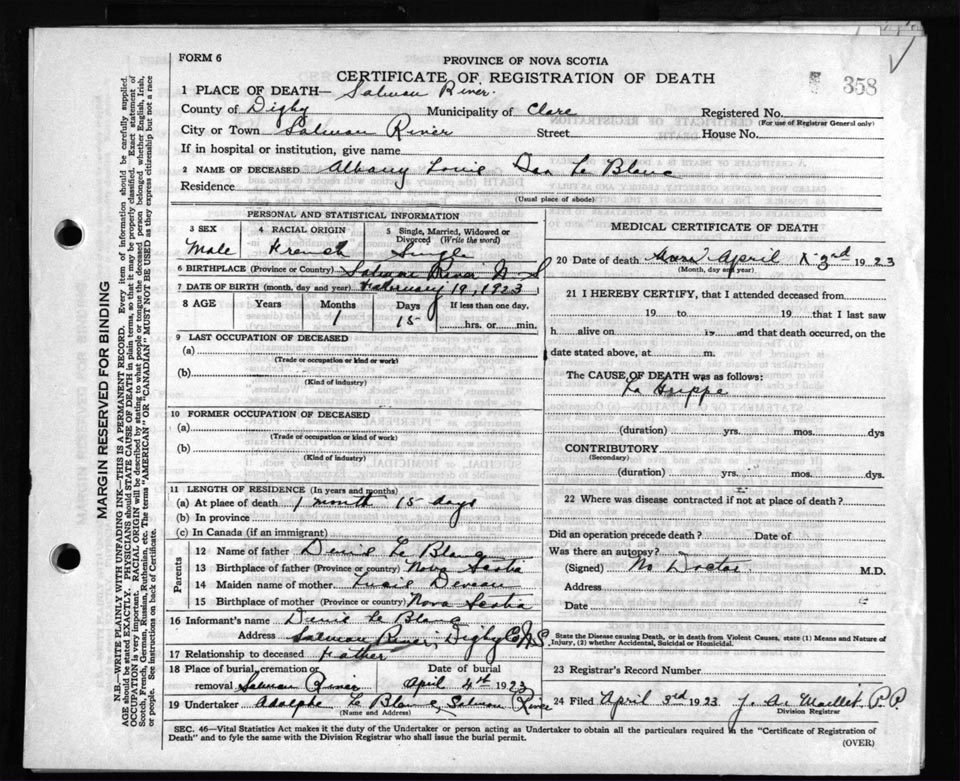 FORM 6
PROVINCE OF NOVA SCOTIA
CERTIFICATE OF REGISTRATION OF DEATH
358
1 PLACE OF DEATH— Salmon River.
County of Digby Municipality of Clare Registered No.
(For use of Registrar General only)
City or Town Salmon River Street House No.
If in hospital or institution, give name
2 NAME OF DECEASED Albany Louis Dan Le Blanc
Residence
(Usual place of abode)
PERSONAL AND STATISTICAL INFORMATION
3 SEX
Male
4 RACIAL ORIGIN
French
5 Single, Married, Widowed or
Divorced (Write the word)
Single
6 BIRTHPLACE (Province or Country) Salmon River N S
7 DATE OF BIRTH (month, day and year) February 19, 1923
8 AGE Years Months Days If less than one day,
1 15 hrs. or min.
9 LAST OCCUPATION OF DECEASED
(a)
(Trade or occupation or kind or work)
(b)
(Kind of industry)
10 FORMER OCCUPATION OF DECEASED
(a)
(Trade or occupation or kind of work)
(b)
(Kind of industry)
11 LENGTH OF RESIDENCE (In years and months)
(a) At place of death 1 month 15 days
(b) In province
(c) In Canada (if an immigrant)
Parents
12 Name of father Denis Le Blanc
13 Birthplace of father (Province or country) Nova Scotia
14 Maiden name of mother. Lucie Deveau
15 Birthplace of mother (Province or country) Nova Scotia
16 Informant's name Denis Le Blanc
Address Salmon River, Digby Co N.S
17 Relationship to deceased Father
18 Place of burial, cremation or
removal Salmon River
Date of burial
April 4th 1923
19 Undertaker Adolphe Le Blanc, Salmon River
(Name and Address)
MEDICAL CERTIFICATE OF DEATH
20 Date of death April 3rd 1923
(Month, day and year)
21 I HEREBY CERTIFY, that I attended deceased from
19 to 19 that I last saw
h alive on 19 and that death occurred, on the
date stated above, at m.
The CAUSE OF DEATH was as follows:
La Grippe
(duration) yrs. mos. dys
CONTRIBUTORY
(Secondary)
(duration) yrs. mos. dys.
22 Where was disease contracted if not at place of death?
Did an operation precede death? Date of
Was there an autopsy?
(Signed) No Doctor M.D.
Address
Date
State the Disease causing Death, or in death from Violent Causes, state (1) Means and Nature of
Injury, (2) whether Accidental, Suicidal or Homicidal.
23 Registrar's Record Number
24 Filed April 3rd 1923 J. A. Maillet, P.P.
Division Registrar
SEC. 46—Vital Statistics Act makes it the duty of the Undertaker or person acting as Undertaker to obtain all the particulars required in the "Certificate of Registration of
Death" and to fyle the same with the Division Registrar who shall issue the burial permit.
(OVER)
MARGIN RESERVED FOR BINDING
N.B.—WRITE PLAINLY WITH UNFADING INK—THIS IS A PERMANENT RECORD. Every item of information should be carefully supplied.
AGE should be stated EXACTLY. PHYSICIANS should STATE CAUSE OF DEATH in plain terms, so that it may be properly classified. Exact statement of
OCCUPATION is very important. RACIAL ORIGIN will be described by stating to what people or tongue the deceased person belonged whether English, Irish,
Scotch, French, German, Russian, Ruthenian, etc. The terms "AMERICAN" OR "CANADIAN" MUST NOT BE USED as they express citizenship but not a race
or people. See instructions on back of Certificate.